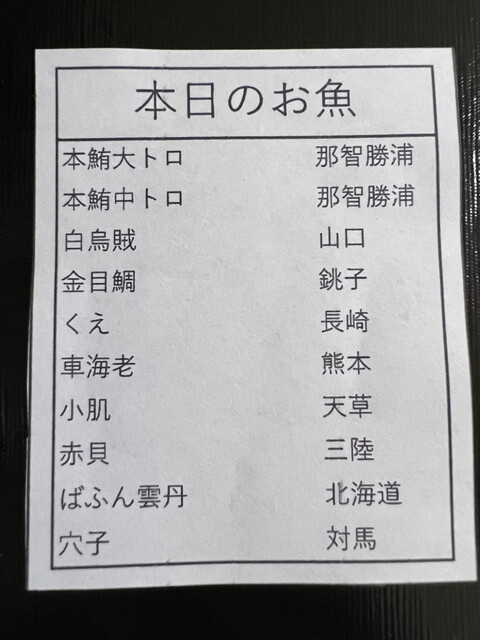 本日のお魚
本鮪大トロ 那智勝浦
本鮪中トロ 那智勝浦
白烏賊 山口
金目鯛 銚子
くえ 長崎
車海老 熊本
小肌 天草
赤貝 三陸
ばふん雲丹 北海道
穴子 対馬